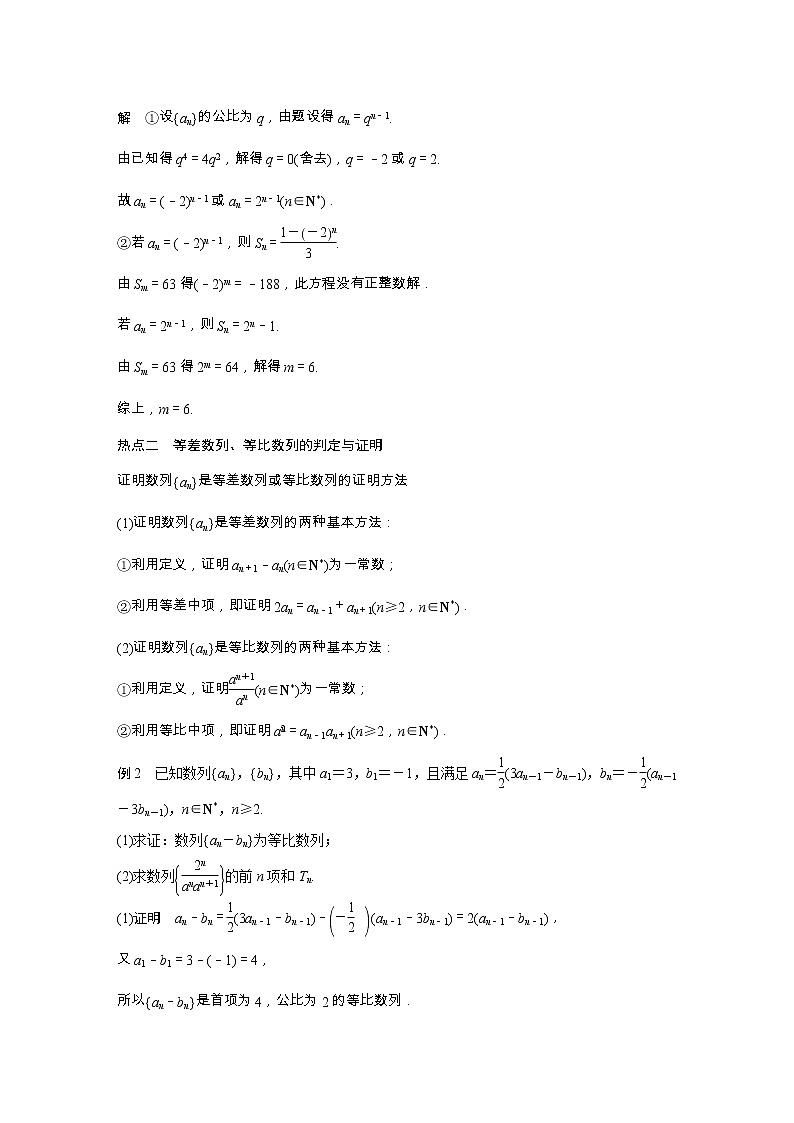 解　①设{aₙ}的公比为 q，由题设得 aₙ＝qⁿ⁻¹.
由已知得 q⁴＝4q²，解得 q＝0(舍去)，q＝－2 或 q＝2.
故 aₙ＝(－2)ⁿ⁻¹ 或 aₙ＝2ⁿ⁻¹(n∈N*)．
②若 aₙ＝(－2)ⁿ⁻¹，则 Sₙ＝\frac{1－(－2)ⁿ}{3}.
由 Sₘ＝63 得(－2)ᵐ＝－188，此方程没有正整数解．
若 aₙ＝2ⁿ⁻¹，则 Sₙ＝2ⁿ－1.
由 Sₘ＝63 得 2ᵐ＝64，解得 m＝6.
综上，m＝6.
热点二　等差数列、等比数列的判定与证明
证明数列{aₙ}是等差数列或等比数列的证明方法
(1)证明数列{aₙ}是等差数列的两种基本方法：
①利用定义，证明 aₙ₊₁－aₙ(n∈N*)为一常数；
②利用等差中项，即证明 2aₙ＝aₙ₋₁＋aₙ₊₁(n≥2，n∈N*)．
(2)证明数列{aₙ}是等比数列的两种基本方法：
①利用定义，证明\frac{aⁿ⁺¹}{aⁿ}(n∈N*)为一常数；
②利用等比中项，即证明 a²ₙ＝aₙ₋₁aₙ₊₁(n≥2，n∈N*)．
例 2　已知数列{aₙ}，{bₙ}，其中 a₁＝3，b₁＝－1，且满足 aₙ＝\frac{1}{2}(3aₙ₋₁－bₙ₋₁)，bₙ＝－\frac{1}{2}(aₙ₋₁
－3bₙ₋₁)，n∈N*，n≥2.
(1)求证：数列{aₙ－bₙ}为等比数列；
(2)求数列{\frac{2ⁿ}{aⁿaⁿ⁺¹}}的前 n 项和 Tₙ.
(1)证明　aₙ－bₙ＝\frac{1}{2}(3aₙ₋₁－bₙ₋₁)－(－\frac{1}{2})(aₙ₋₁－3bₙ₋₁)＝2(aₙ₋₁－bₙ₋₁)，
又 a₁－b₁＝3－(－1)＝4，
所以{aₙ－bₙ}是首项为 4，公比为 2 的等比数列．